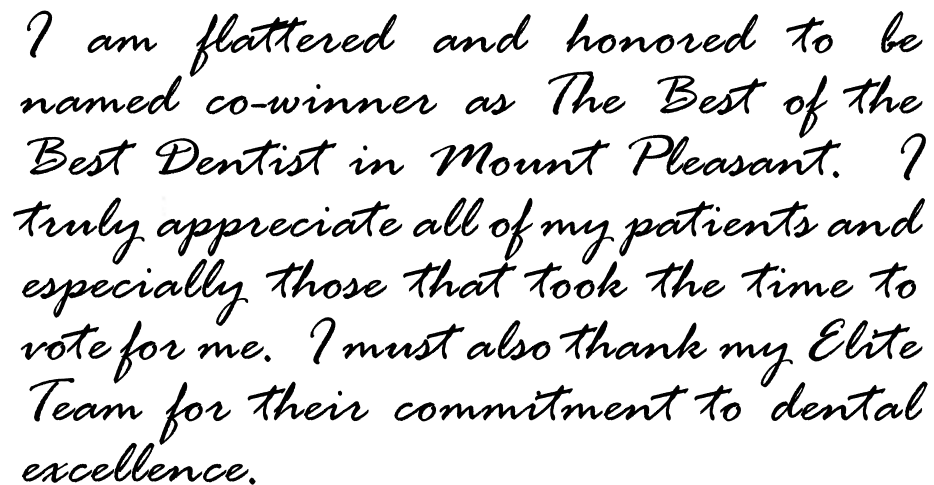 I am flattered and honored to be
named co-winner as The Best of the
Best Dentist in Mount Pleasant. I
truly appreciate all of my patients and
especially those that took the time to
vote for me. I must also thank my Elite
Team for their commitment to dental
excellence.